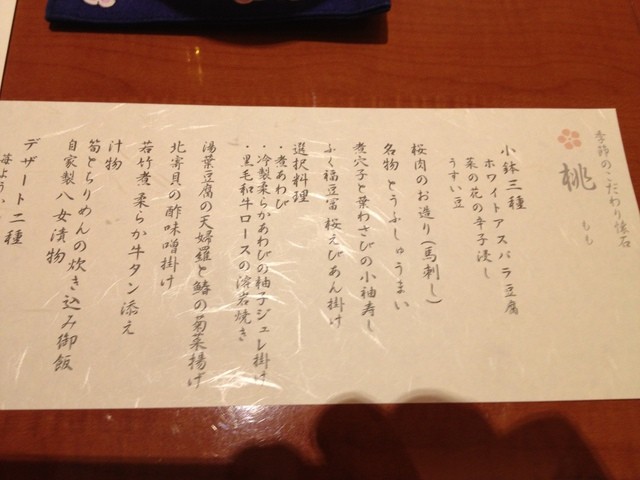 季節のこだわり懐石
桃
もも
小鉢三種
ホワイトアスパラ豆腐
菜の花の辛子浸し
うすい豆
桜肉のお造り(馬刺し)
名物 とうふしゅうまい
煮穴子と葉わさびの小袖寿し
ふく福豆富 桜えびあん掛け
選択料理
・煮あわび
・冷製柔らかあわびの柚子ジュレ掛け
・黒毛和牛ロースの溶岩焼き
湯葉豆腐の天婦羅と鰆の菊菜揚げ
北寄貝の酢味噌掛け
若竹煮 柔らか牛タン添え
汁物
筍とちりめんの炊き込み御飯
自家製八女漬物
デザート二種